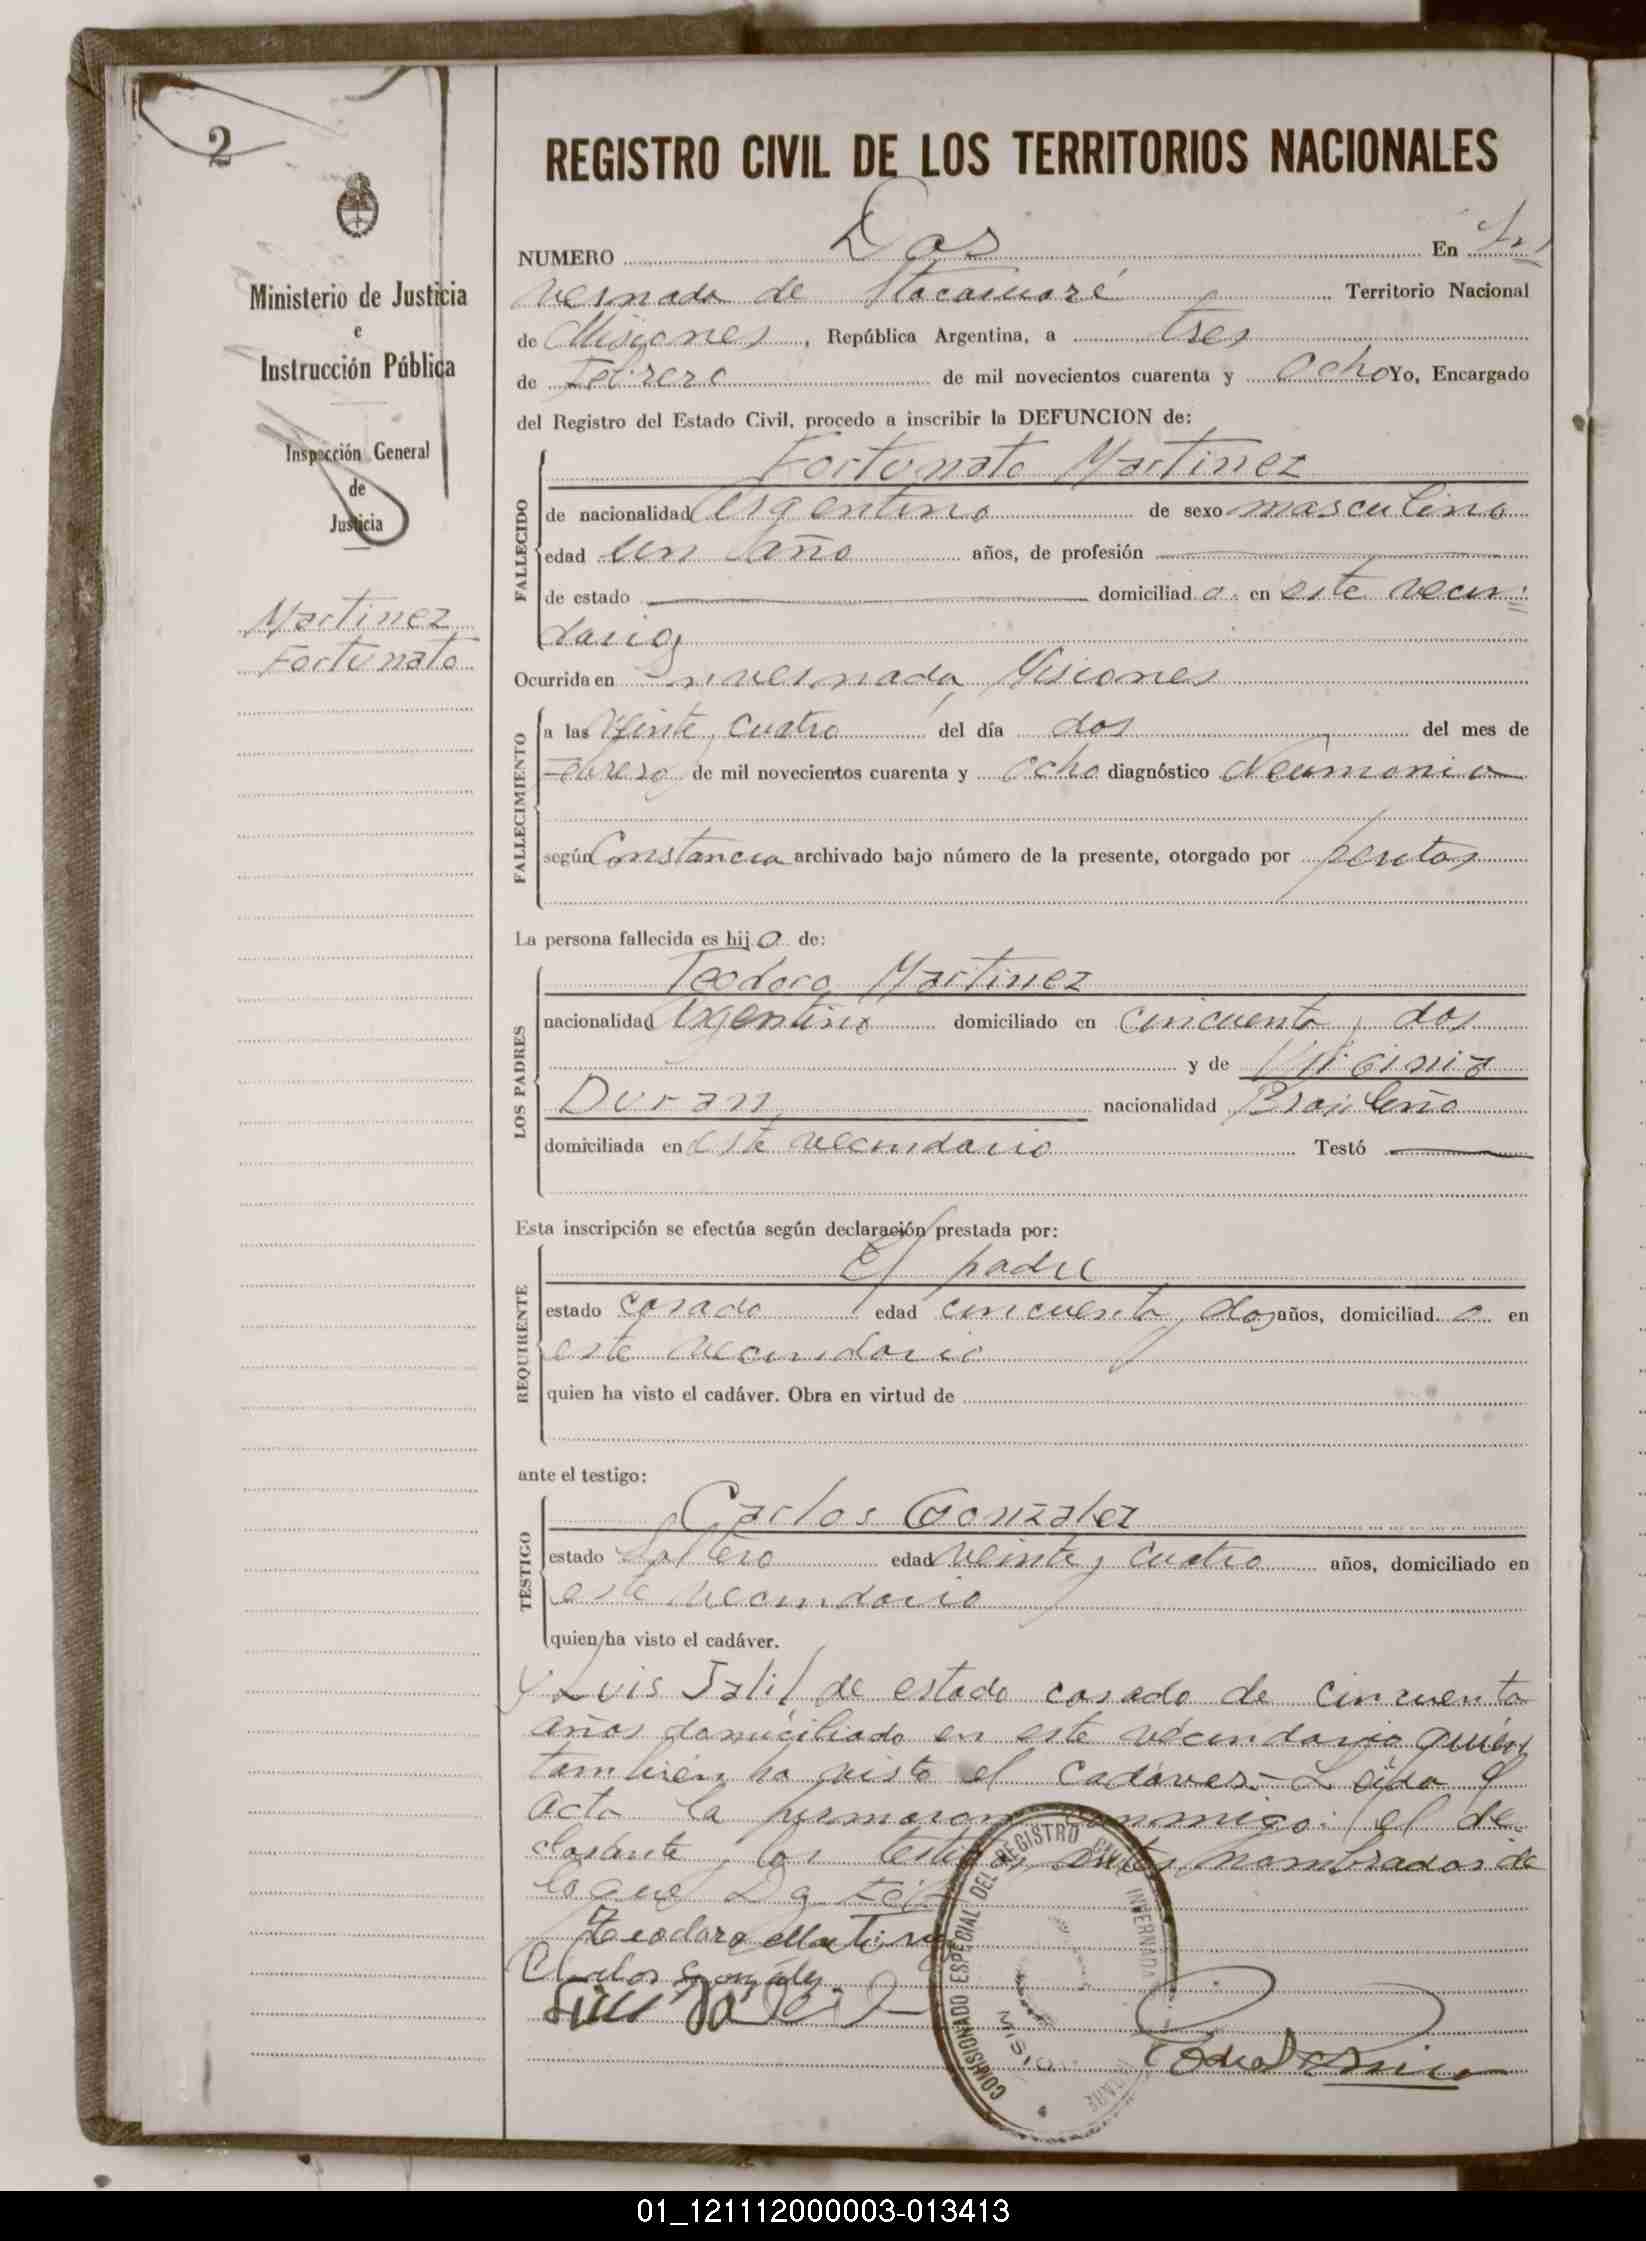 2
Ministerio de Justicia
e
Instrucción Pública
Inspección General
de
Justicia
Martinez
Fortunato
REGISTRO CIVIL DE LOS TERRITORIOS NACIONALES
NUMERO Dos En In
vernada de Itacaruaré Territorio Nacional
de Misiones, República Argentina, a tres
de Febrero de mil novecientos cuarenta y ocho Yo, Encargado
del Registro del Estado Civil, procedo a inscribir la DEFUNCION de:
FALLECIDO
Fortunato Martinez
de nacionalidad Argentino de sexo masculino
edad un año años, de profesión
de estado domiciliad o en este vecin=
dario,
Ocurrida en Invernada, Misiones
FALLECIMIENTO
a las Veinte y cuatro del día dos del mes de
Febrero de mil novecientos cuarenta y ocho diagnóstico Neumonia
según Constancia archivado bajo número de la presente, otorgado por peritos
La persona fallecida es hij o de:
LOS PADRES
Teodoro Martinez
nacionalidad Argentino domiciliado en cincuenta y dos
y de Virginia
Duran nacionalidad Brasileño
domiciliada en este vecindario Testó
Esta inscripción se efectúa según declaración prestada por:
REQUIRENTE
El padre
estado casado edad cincuenta y dos años, domiciliad o en
este vecindario
quien ha visto el cadáver. Obra en virtud de
ante el testigo:
TESTIGO
Carlos Gonzalez
estado Soltero edad veinte y cuatro años, domiciliado en
este vecindario
quien ha visto el cadáver.
y Luis Jalil de estado casado de cincuenta
años domiciliado en este vecindario quién
también ha visto el cadáver.- Leida el
acta la firmaron conmigo: el de=
clarante y los testigos antes nombrados de
lo que Doy fé.
Teodoro Martinez
Carlos González
Luis Jalil
COMISIONADO ESPECIAL DEL REGISTRO CIVIL INVERNADA
01_121112000003-013413